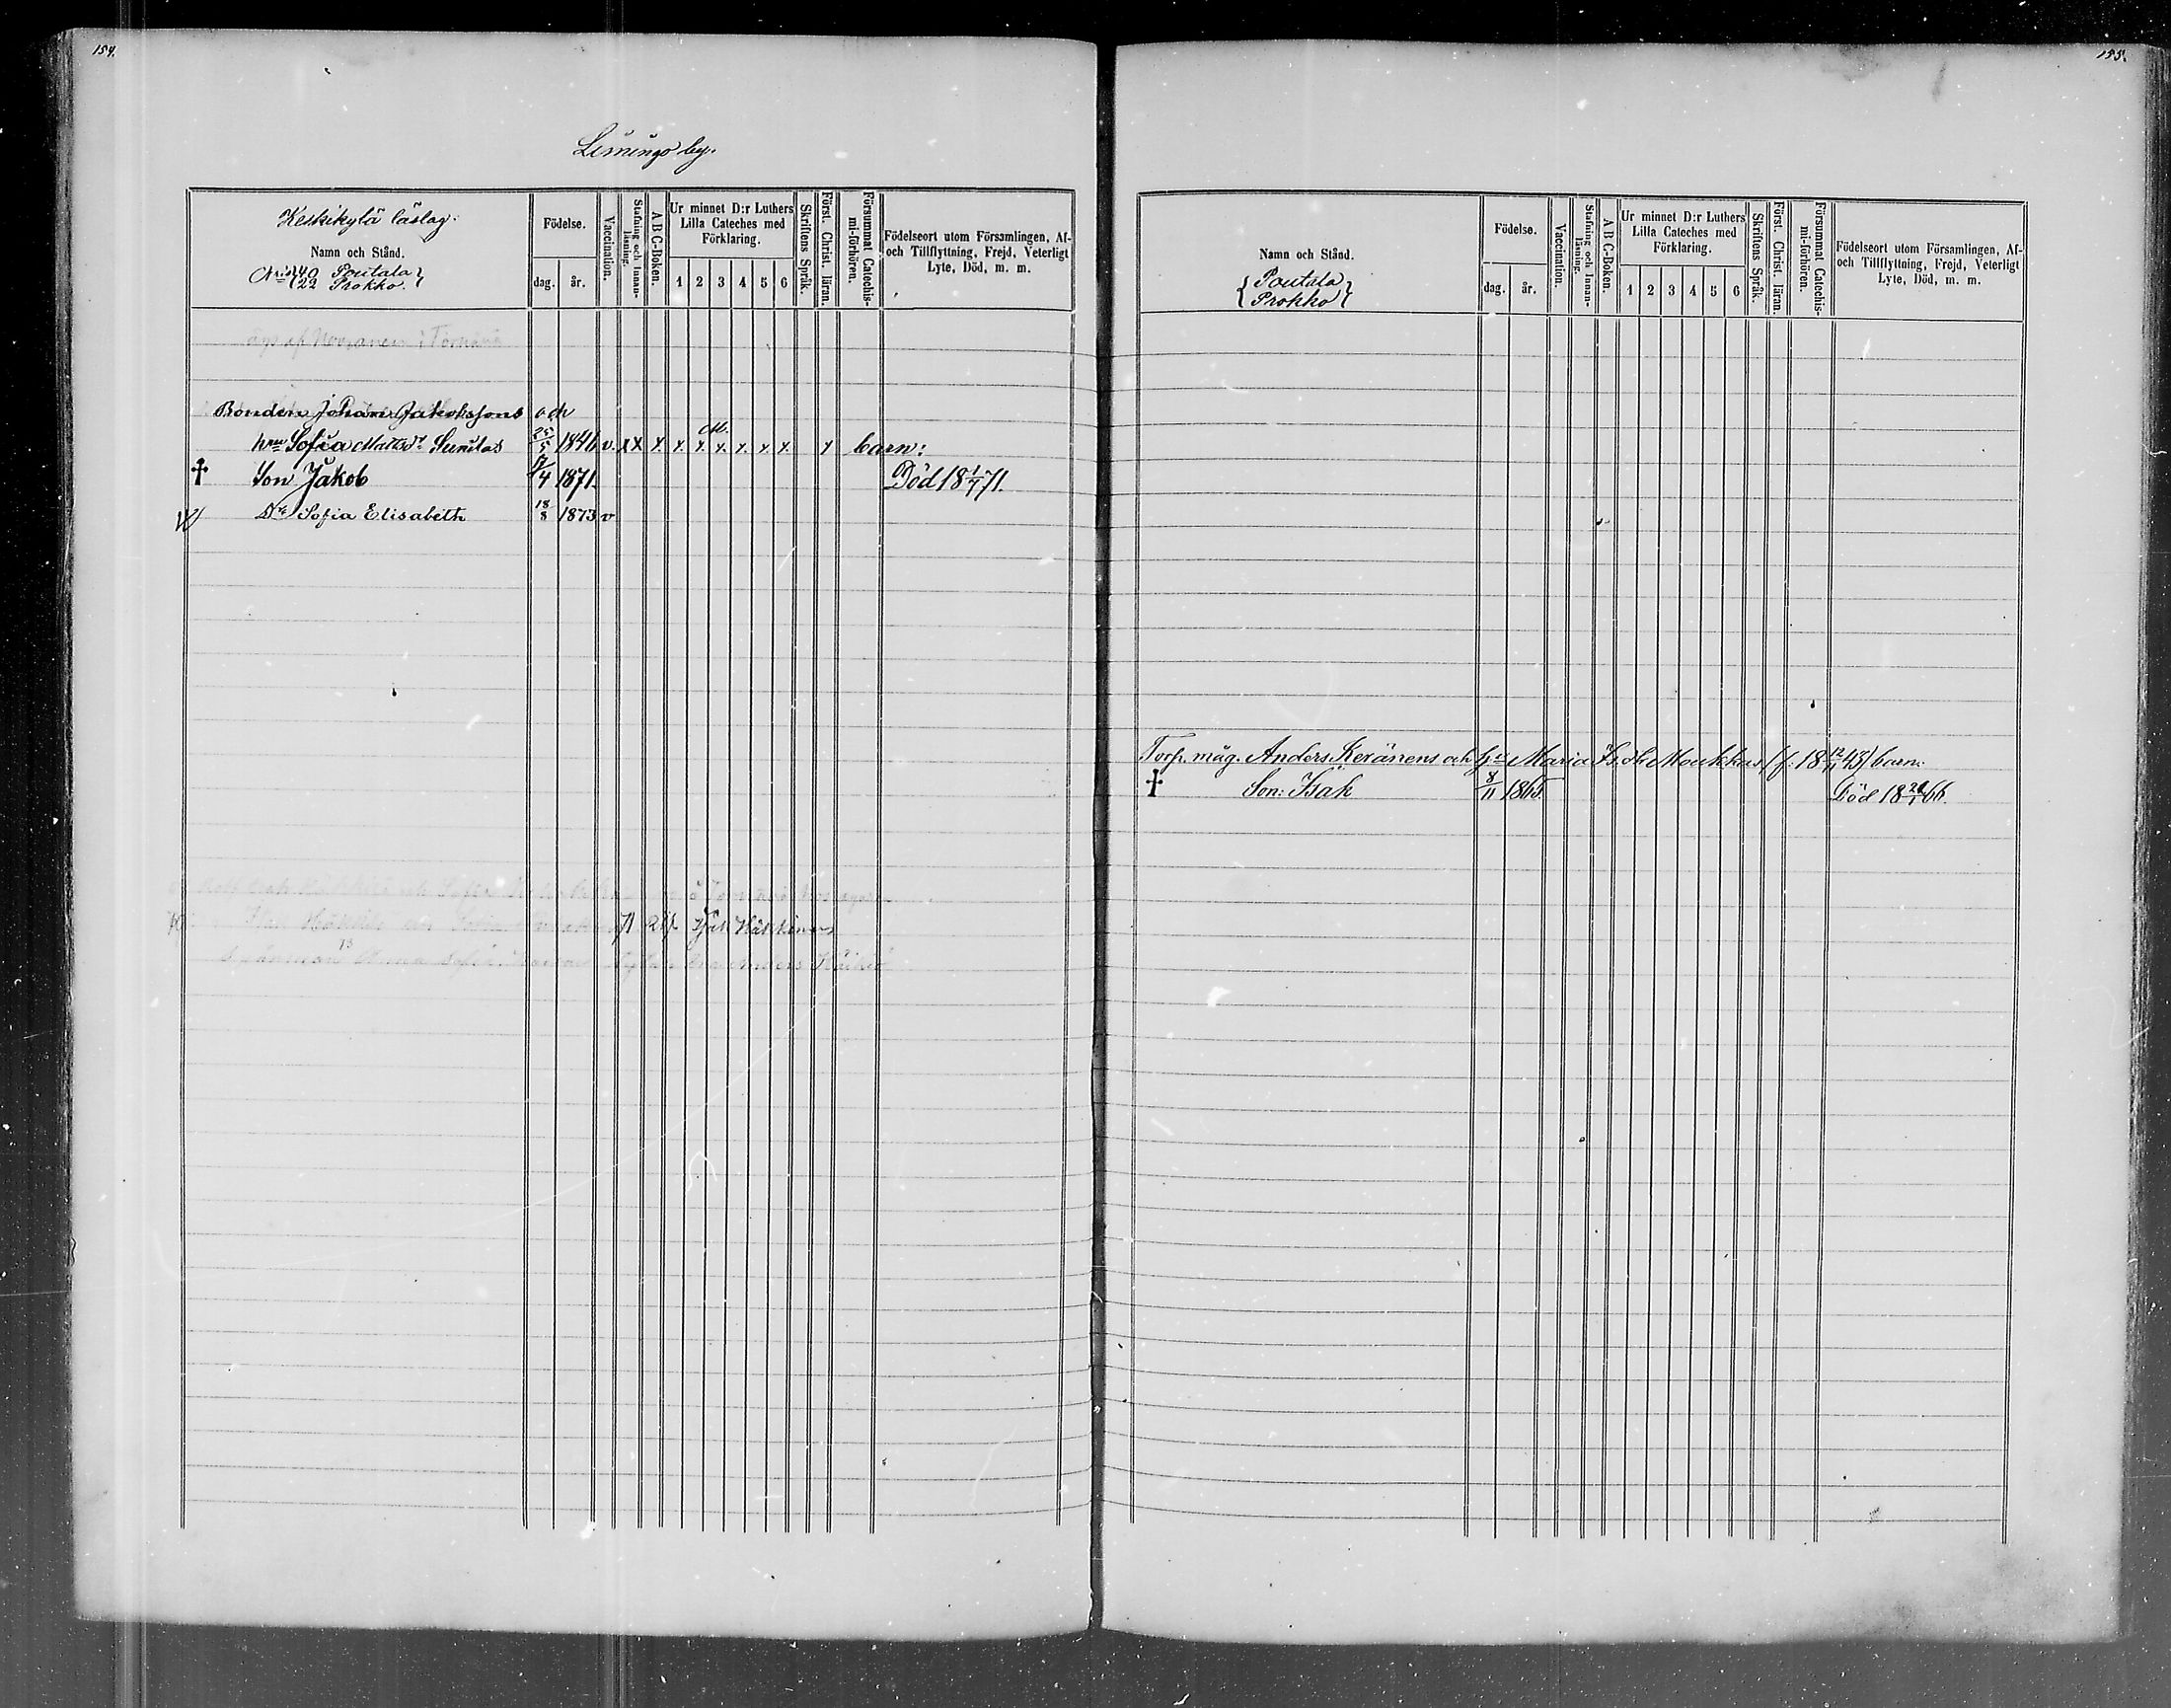 154.
Limingo by.
Keskikylä läslag:
Namn och Stånd.
N:ris {40 Poutala
22 Prokko.}
Födelse.
dag. år.
Vaccination.
Stafning och Innan-
läsning.
A B C-Boken.
Ur minnet D:r Luthers
Lilla Cateches med
Förklaring.
1 2 3 4 5 6
Skriftens Språk.
Först. Christ. läran.
Försummat Catechis-
mi-förhören.
Födelseort utom Församlingen, Af-
och Tillflyttning, Frejd, Veterligt
Lyte, Död, m. m.
Bonden Johan Jakobssons och
h:rm Sofia Matsd:r 25/5 1846 v. barn:
† Son Jakob /4 1871. Död 18 1/7 71.
D:r Sofia Elisabeth 18/8 1873 v
Isak Häkkinen
155.
Namn och Stånd.
{Poutala
Prokko}
Födelse.
dag. år.
Vaccination.
Stafning och Innan-
läsning.
A B C-Boken.
Ur minnet D:r Luthers
Lilla Cateches med
Förklaring.
1 2 3 4 5 6
Skriftens Språk.
Först. Christ. läran.
Försummat Catechis-
mi-förhören.
Födelseort utom Församlingen, Af-
och Tillflyttning, Frejd, Veterligt
Lyte, Död, m. m.
Torp. måg. Anders Keränens och Maria Moukkas (f. 18 43) barn:
† Son: Isak 8/11 1865. Död 18 66.